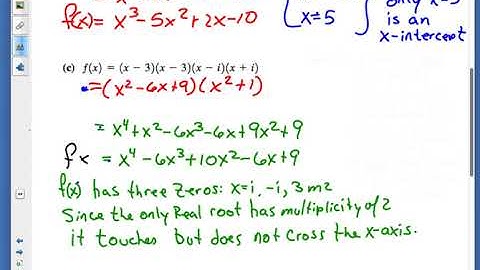 f(x) = x³-5x²+2x-10
x=5
only x=5
is an
x-intercept
(c) f(x) = (x − 3)(x − 3)(x − i)(x + i)
=(x²-6x+9)(x²+1)
= x⁴+x²-6x³-6x+9x²+9
f x = x⁴-6x³+10x²-6x+9
f(x) has three zeros: x=i, -i, 3 m2
Since the only Real root has multiplicity of 2
it touches but does not cross the x-axis.